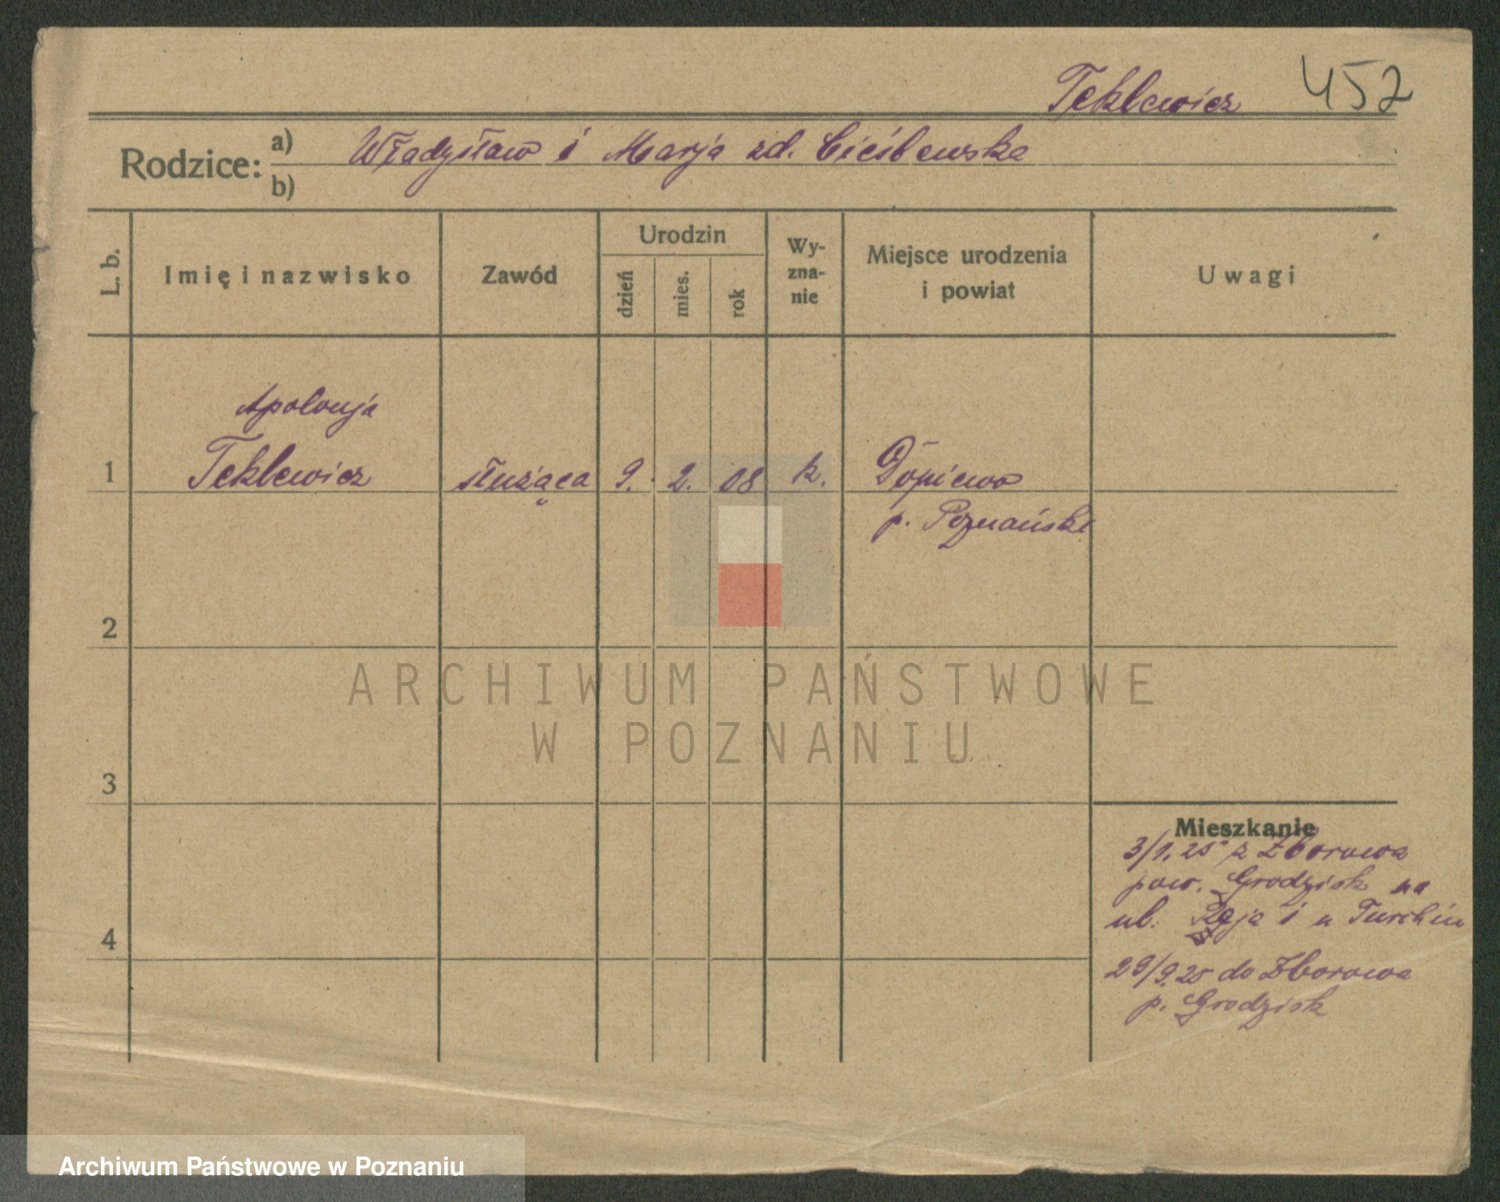 Teklewicz 452
Rodzice: a) Władysław i Marja zd. Cieślewska
b)
L. b.
Imię i nazwisko
Zawód
Urodzin
dzień
mies.
rok
Wy-
zna-
nie
Miejsce urodzenia
i powiat
Uwagi
Apolonja
1 Teklewicz służąca 9. 2. 08 k. Dopiewo
p. Poznański
2
3
4
Mieszkanie
3/1.25 z Zborowa
pow. Grodzisk na
ul. i u Turchin
29/9.25 do Zborowa
p. Grodzisk
ARCHIWUM PAŃSTWOWE
W POZNANIU
Archiwum Państwowe w Poznaniu